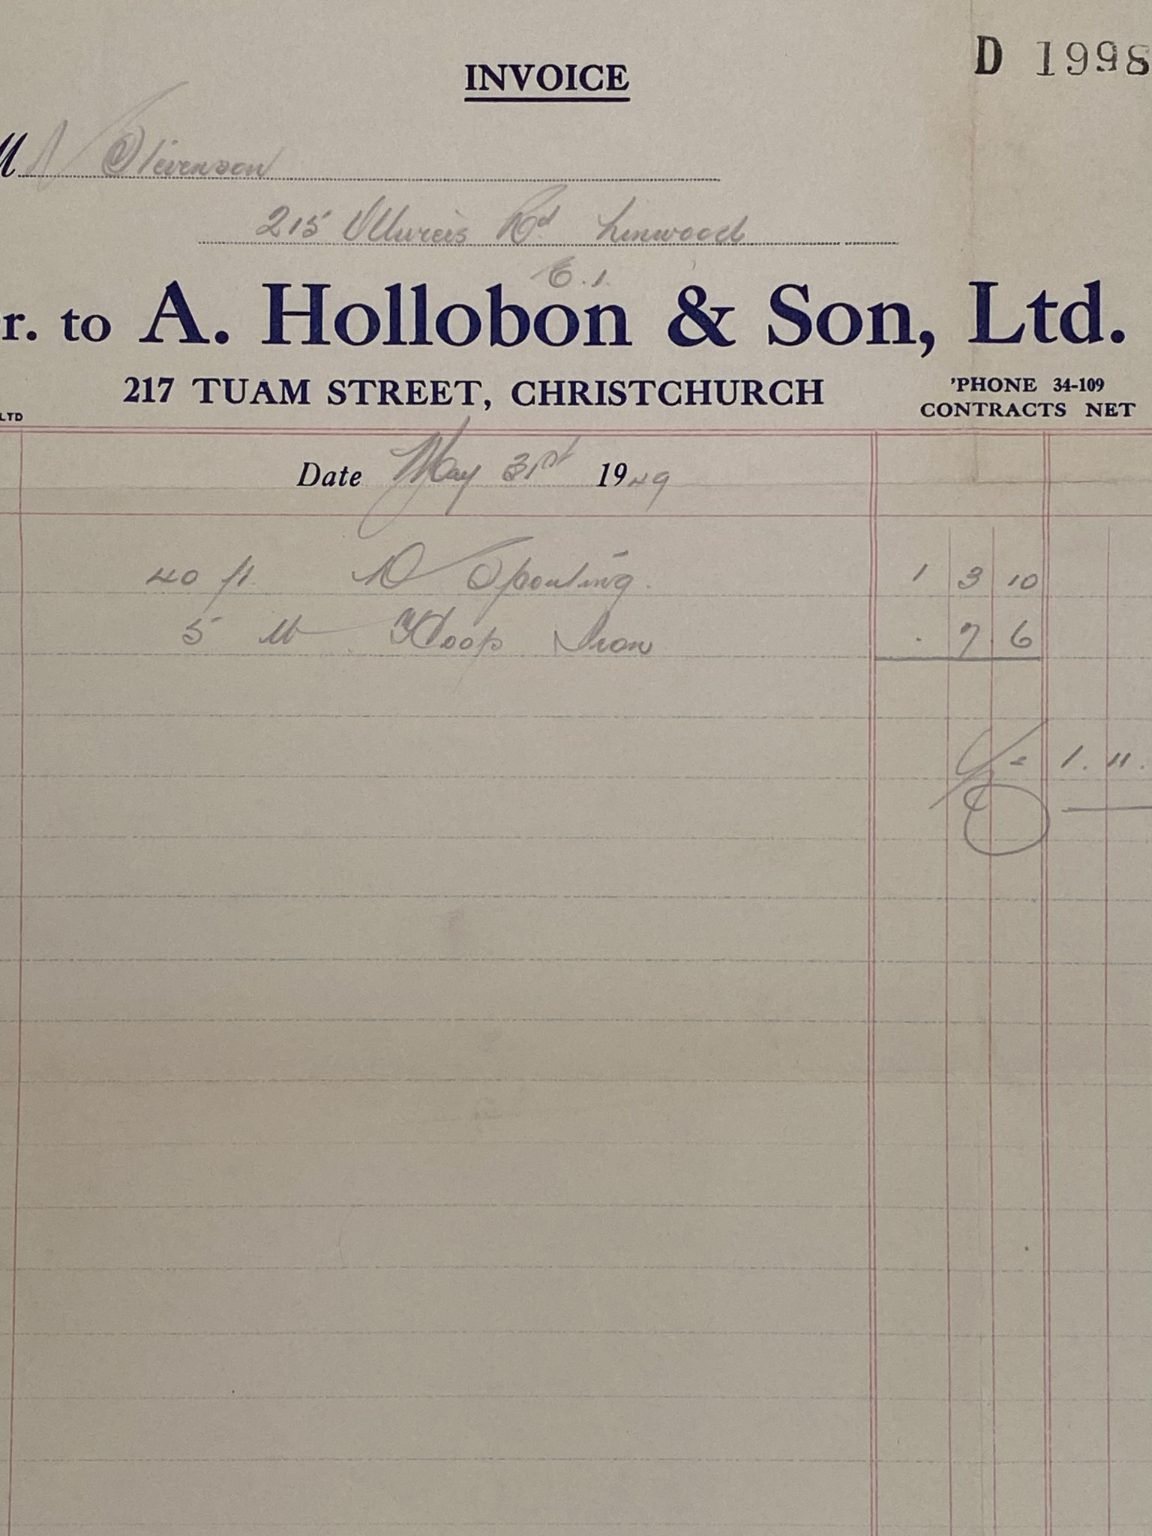 INVOICE
D 1998
M Stevenson
215 Rd Linwood
E.1.
r. to A. Hollobon & Son, Ltd.
217 TUAM STREET, CHRISTCHURCH
'PHONE 34-109
CONTRACTS NET
LTD
Date May 31st 1949
40 ft. D Spouting. 1 3 10
5 lb Hoop Iron . 7. 6
= 1. 11.